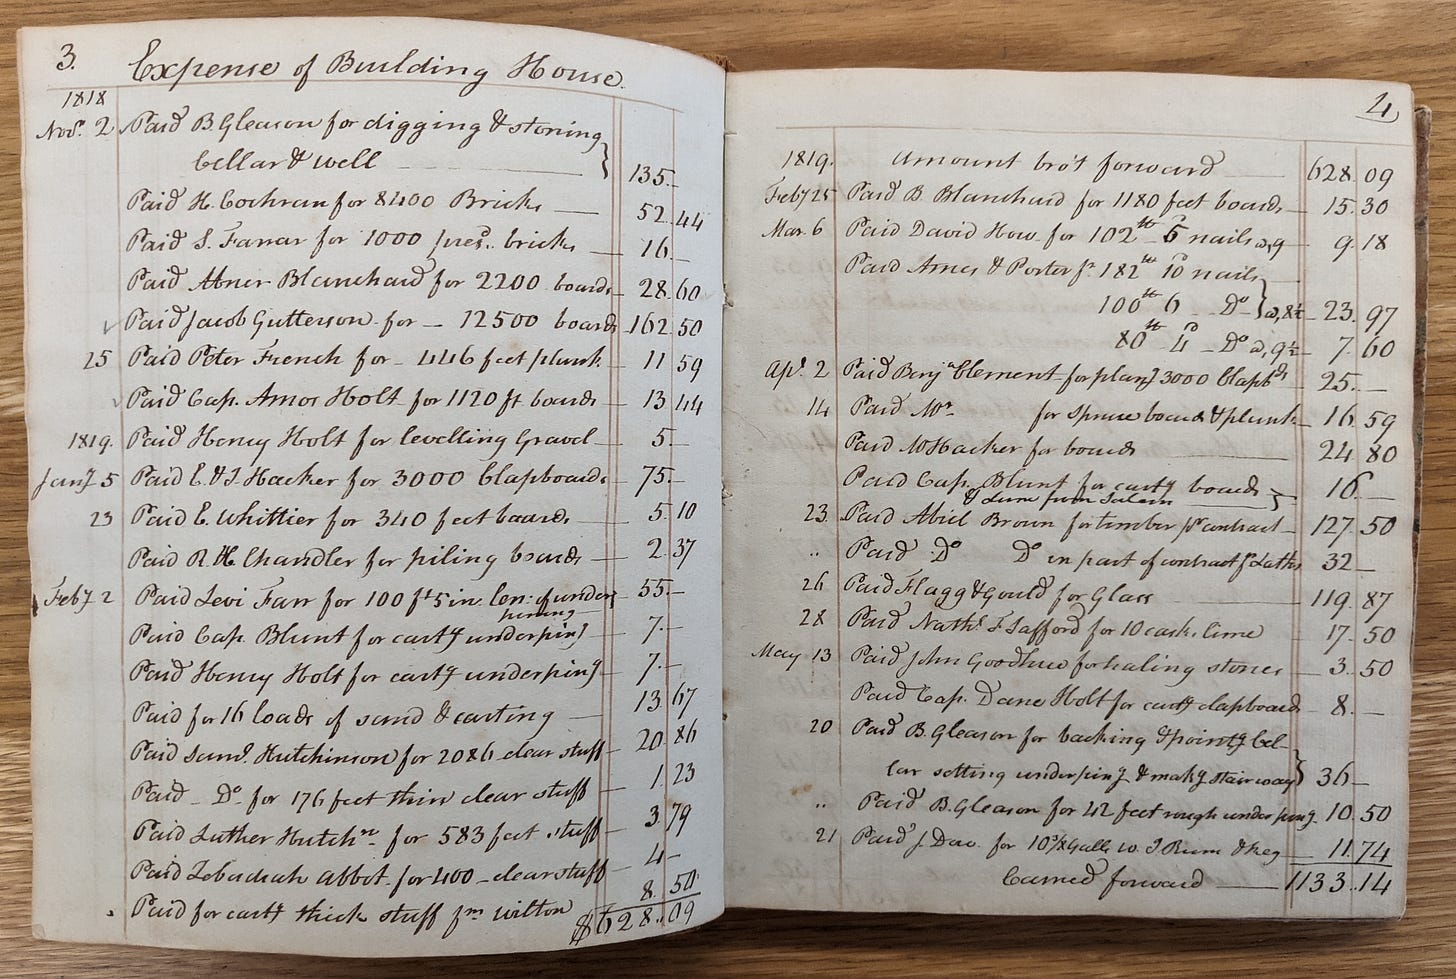 3. Expense of Building House.
1818
Nov.r 2 Paid B Gleason for digging & stoning
Cellar & well 135.—
Paid H. Cochran for 8400 Bricks 52.44
Paid S. Farrar for 1000 pres.d bricks 16.—
Paid Abner Blanchard for 2200 boards 28.60
Paid Jacob Gutterson for 12500 boards 162.50
25 Paid Peter French for 446 feet plank 11 59
Paid Cap. Amos Holt for 1120 ft boards 13 44
1819. Paid Henry Holt for levelling Gravel 5.—
Jany 5 Paid E. & J. Hacker for 3000 Clapboards 75.—
23 Paid E. Whittier for 340 feet boards 5.10
Paid R. H. Chandler for piling boards 2.37
Feby 2 Paid Levi Farr for 100 ft 5 in. len: of under 55.—
pining
Paid Cap. Blunt for cartg underping 7.—
Paid Henry Holt for cartg underping 7.—
Paid for 16 loads of sand & carting 13 67
Paid Saml. Hutchinson for 2086 clear stuff 20.86
Paid Do. for 176 feet thin clear stuff 1.23
Paid Luther Hutchn. for 583 feet stuff 3.79
Paid Zebadiah Abbot for 400 clear stuff 4—
Paid for cartg thick stuff fm Wilton 8.50
$628.09
4
1819. Amount bro't forward 628.09
Feby 25 Paid B. Blanchard for 1180 feet boards 15.30
Mar. 6 Paid David How for 102 lb 5 d nails @ 9 9.18
Paid Ames & Porter fr. 182 lb 10 d nails
100 lb 6 Do } @, 8½ 23.97
80 lb 4 d Do @, 9½ 7.60
Apl. 2 Paid Benj Clement for plang 3000 Clapbds 25.—
14 Paid Mr. for spruce boards & plank 16.59
Paid W Hacker for boards 24.80
Paid Cap. Blunt for cartg boards 16.—
& Lime from Salem
23 Paid Abiel Brown for timber pr contract 127.50
" Paid Do Do in part of contract fr Laths 32—
26 Paid Flagg & Gould for Glass 119.87
28 Paid Nathl. F. Safford for 10 casks lime 17.50
May 13 Paid John Goodhue for haling stones 3.50
Paid Cap. Dane Holt for cartg clapboards 8.—
20 Paid B. Gleason for backing & pointg Cel-
lar setting underping & makg stairway 36—
" Paid B. Gleason for 42 feet rough underping 10.50
21 Paid J. Dow for 10⅜ Galls W. I. Rum & keg 11.74
Carried forward 1133.14